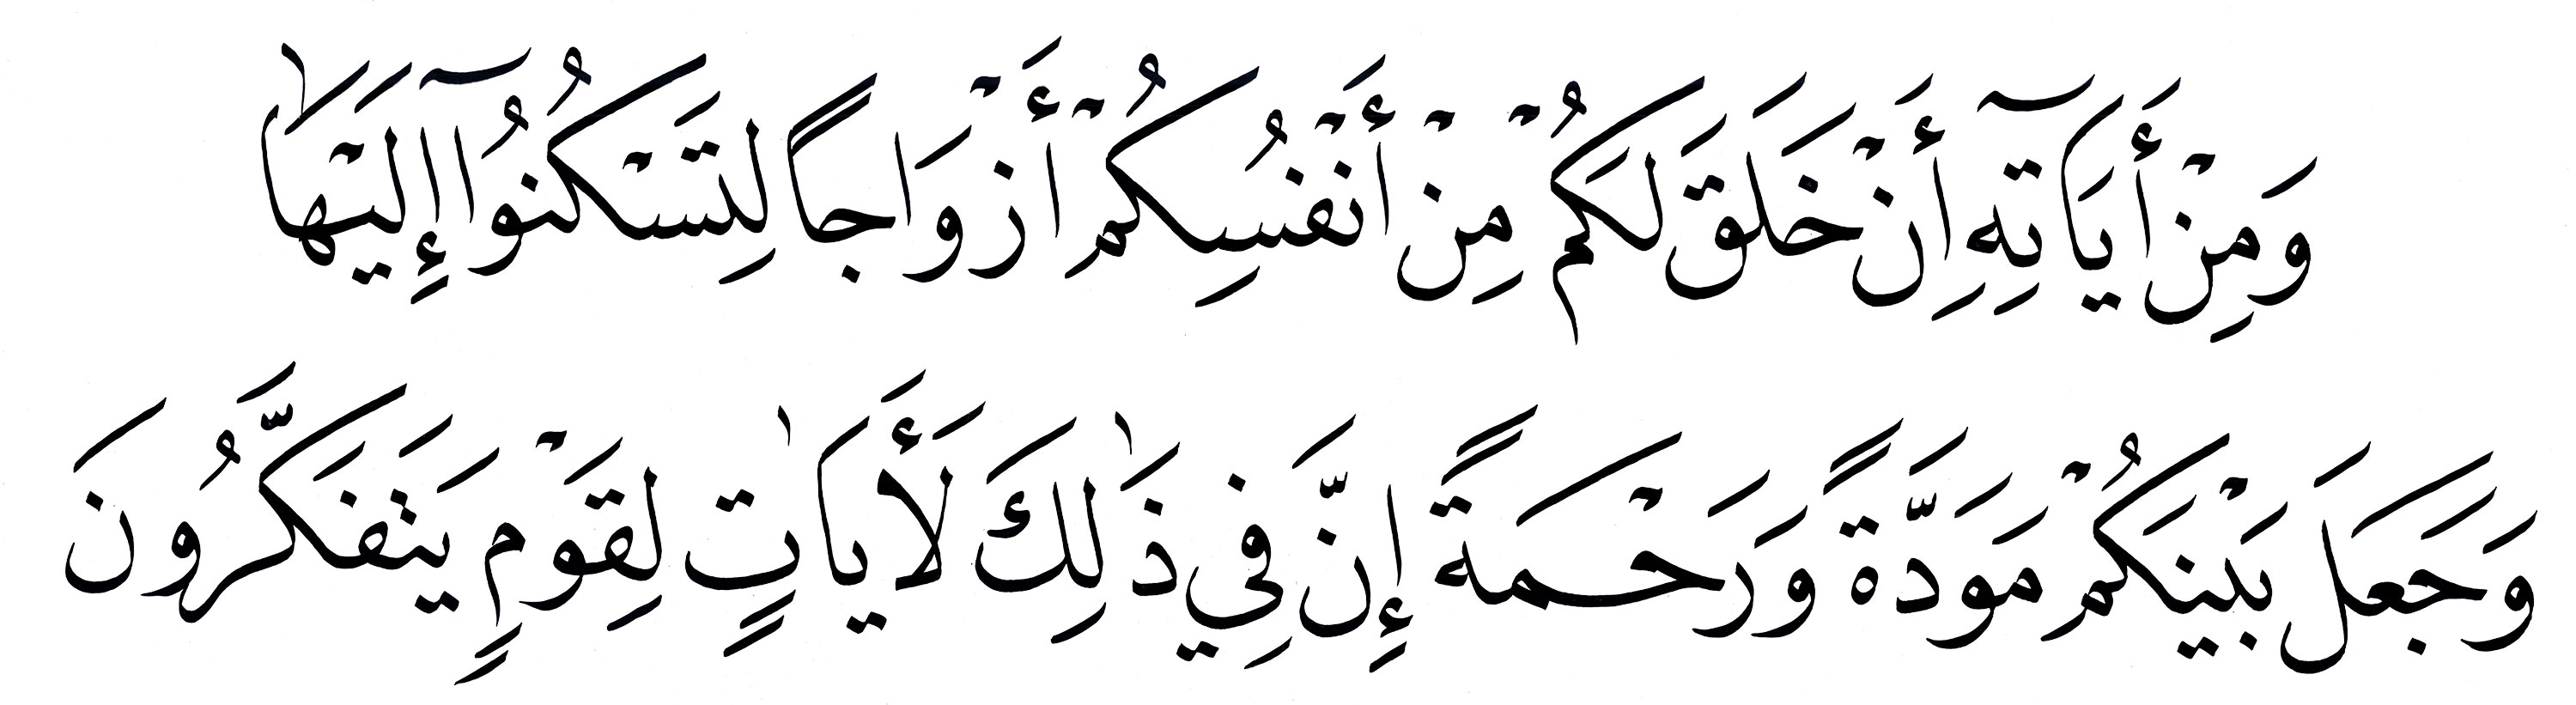 وَمِنْ أَيَاتِهِٓ أَنْ خَلَقَ لَكُمْ مِنْ أَنْفُسِكُمْ أَزْوَاجًا لِتَسْكُنُوٓا إِلَيْهَا
وَجَعَلَ بَيْنَكُمْ مَوَدَّةً وَرَحْمَةً إِنَّ فِي ذَٰلِكَ لَأَيَاتٍ لِقَوْمٍ يَتَفَكَّرُونَ